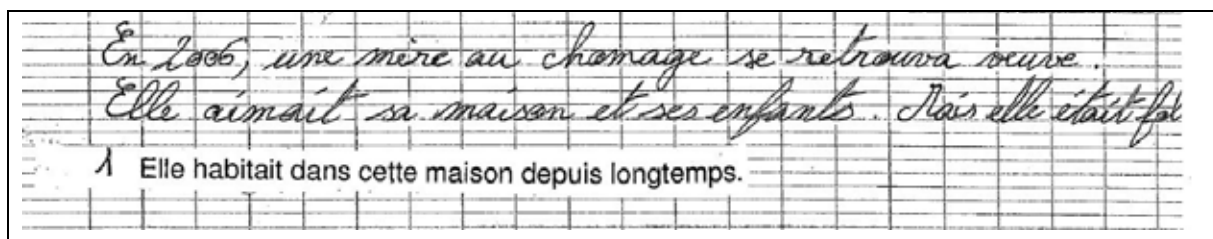 En 2006, une mère au chomage se retrouva veuve.
Elle aimait sa maison et ses enfants. Mais elle était
1 Elle habitait dans cette maison depuis longtemps.